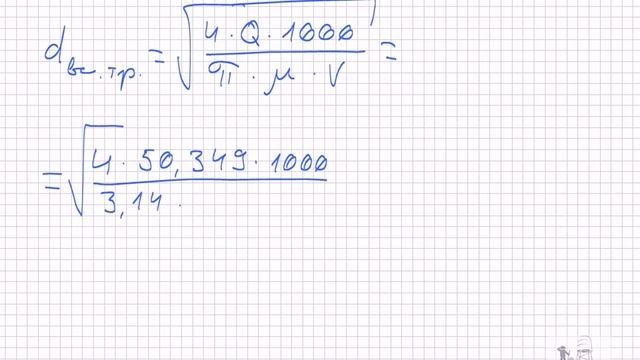 d вс.тр. = √(4 · Q · 1000 / π · μ · V) =
= √(4 · 50,349 · 1000 / 3,14 ·